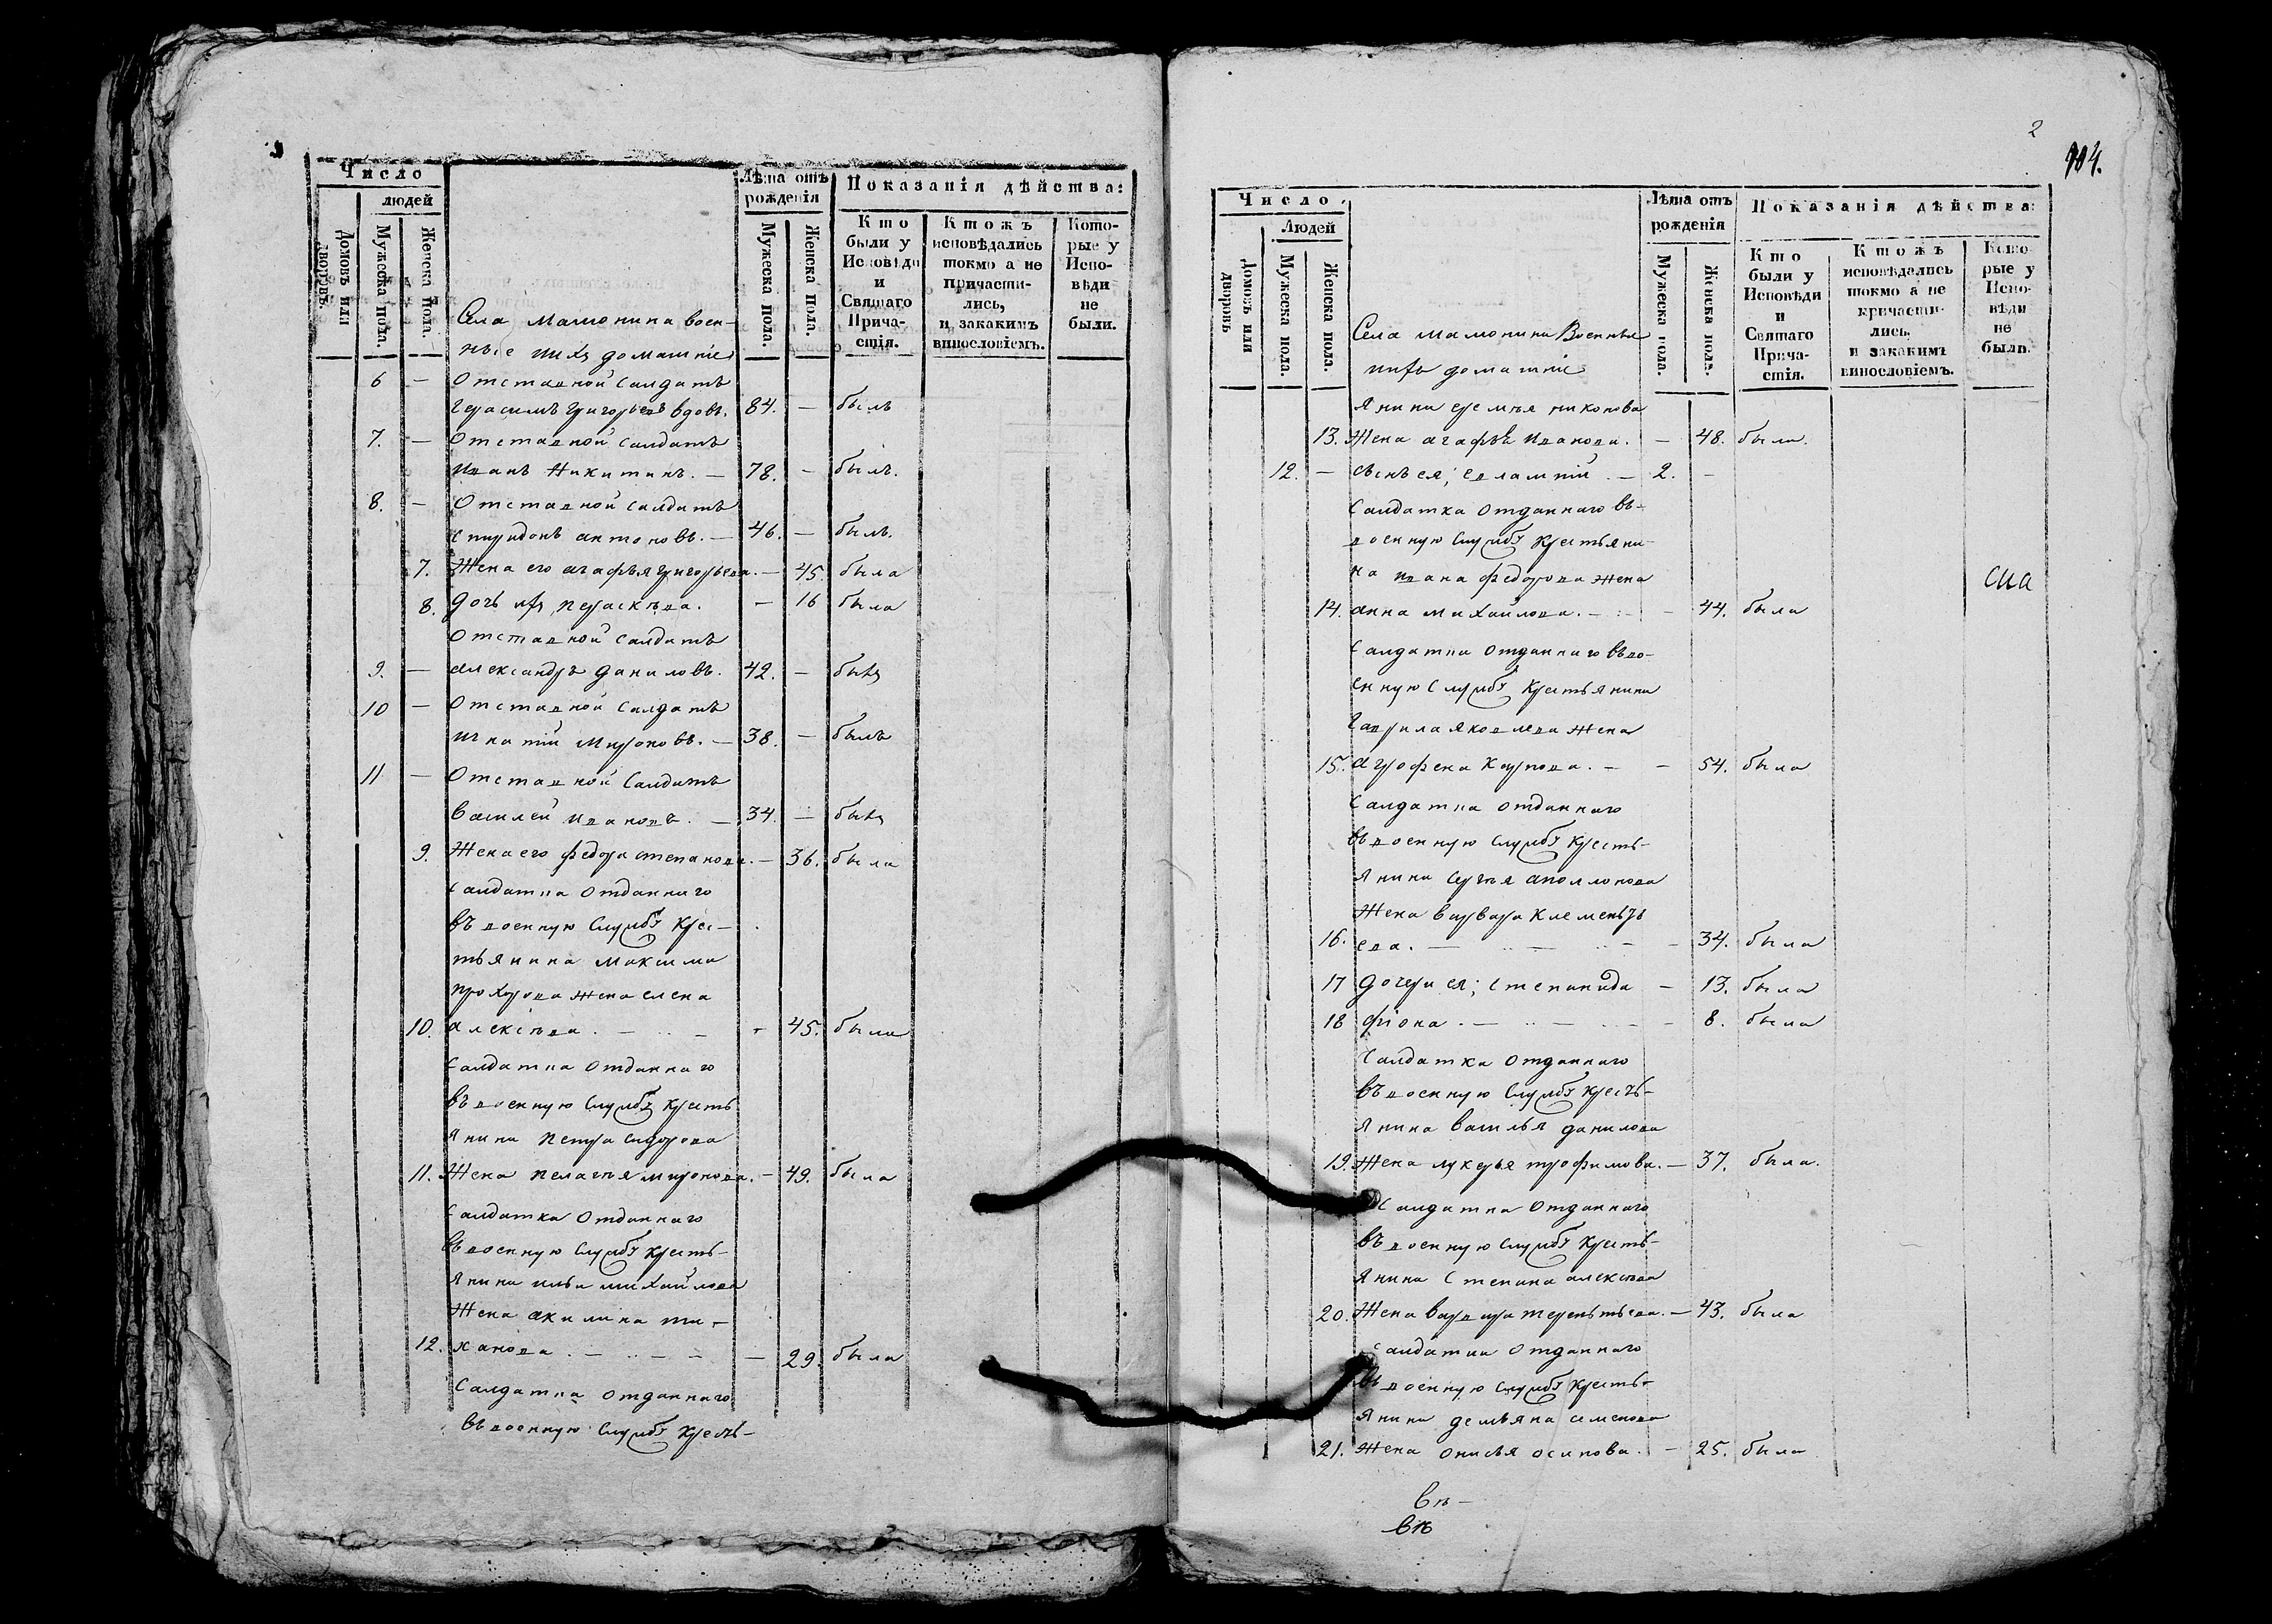 Число
людей
Домовъ или дворовъ.
Мужеска пола.
Женска пола.
Лѣта отъ рожденія
Мужеска пола.
Женска пола.
Показанія дѣйства:
Кто были у Исповѣди и Святаго Причастія.
Ктожъ исповѣдались токмо а не причастились, и закакимъ винословіемъ.
Которые у Исповѣди не были.
Села мамонина воен-
ные ихъ домашніе
6 — Отставной Салдатъ
Герасимъ Григорьевъ вдовъ. 84. — былъ
7. — Отставной Салдатъ
Иванъ Никитинъ. — 78. — былъ.
8. — Отставной Салдатъ
Спиридонъ антоновъ. — 46. — былъ.
7. Жена его агафья григорьева. — 45. была
8. дочь ихъ, параскѣва. — 16 была
Отставной Салдатъ
9. — александръ даниловъ. 42. — былъ
10 — Отставной Салдатъ
игнатій Мироновъ. — 38. — былъ
11 — Отставной Салдатъ
василей ивановъ. — 34. — былъ
9. Жена его федора степанова. — 36. была
Салдатка Отданнаго
въ военную Службу Крес-
тьянина максима
прохорова жена елена
10. алексѣева. — 45. была
Салдатка Отданнаго
въ военную Службу Кресть
янина петра сидорова
11. Жена пелагѣя миронова. — 49. была
Салдатка Отданнаго
въ военную Службу Кресть-
янина ильи михайлова
Жена акилина ти-
12. ханова. — — 29. была
Салдатка отданнаго
въ военную Службу Кресть-
2
904.
Число
Людей
Домовъ или дворовъ
Мужеска пола.
Женска пола.
Лѣта отъ рожденія
Мужеска пола.
Женска пола.
Показанія дѣйства:
Кто были у Исповѣди и Святаго Причастія.
Ктожъ исповѣдались токмо а не причастились, и закакимъ винословіемъ.
Которые у Исповѣди не были.
Села мамонина Военные
ихъ домашніе
янина еремѣя никонова
13. Жена агафья иванова. — 48. была.
12. — сынъ ея; евлампій. — 2. —
Салдатка Отданнаго въ-
военную Службу Крестьяни-
на ивана федорова Жена
14. анна михайлова. — 44. была
Салдатка Отданнаго въво-
енную Службу Крестьянина
гаврила яковлева Жена
15. агрофена Карпова. — — 54. была
Салдатка отданнаго
въ военную Службу Кресть-
янина сергѣя аполлонова
Жена варвара Клементь
16. ева. — — 34. была
17 дочери ея; степанида — 13. была
18 фіона. — — 8. была
Салдатка Отданнаго
въ военную Службу Кресть-
янина василья данилова
19. Жена лукерья трофимова. — 37. была.
Салдатка Отданнаго
въ военную Службу Кресть-
янина Степана алексѣева
20. Жена варвара терентьева. — 43. была
Салдатка Отданнаго
въ военную Службу Кресть-
янина демьяна семенова
21. Жена онисья осипова. — 25. была